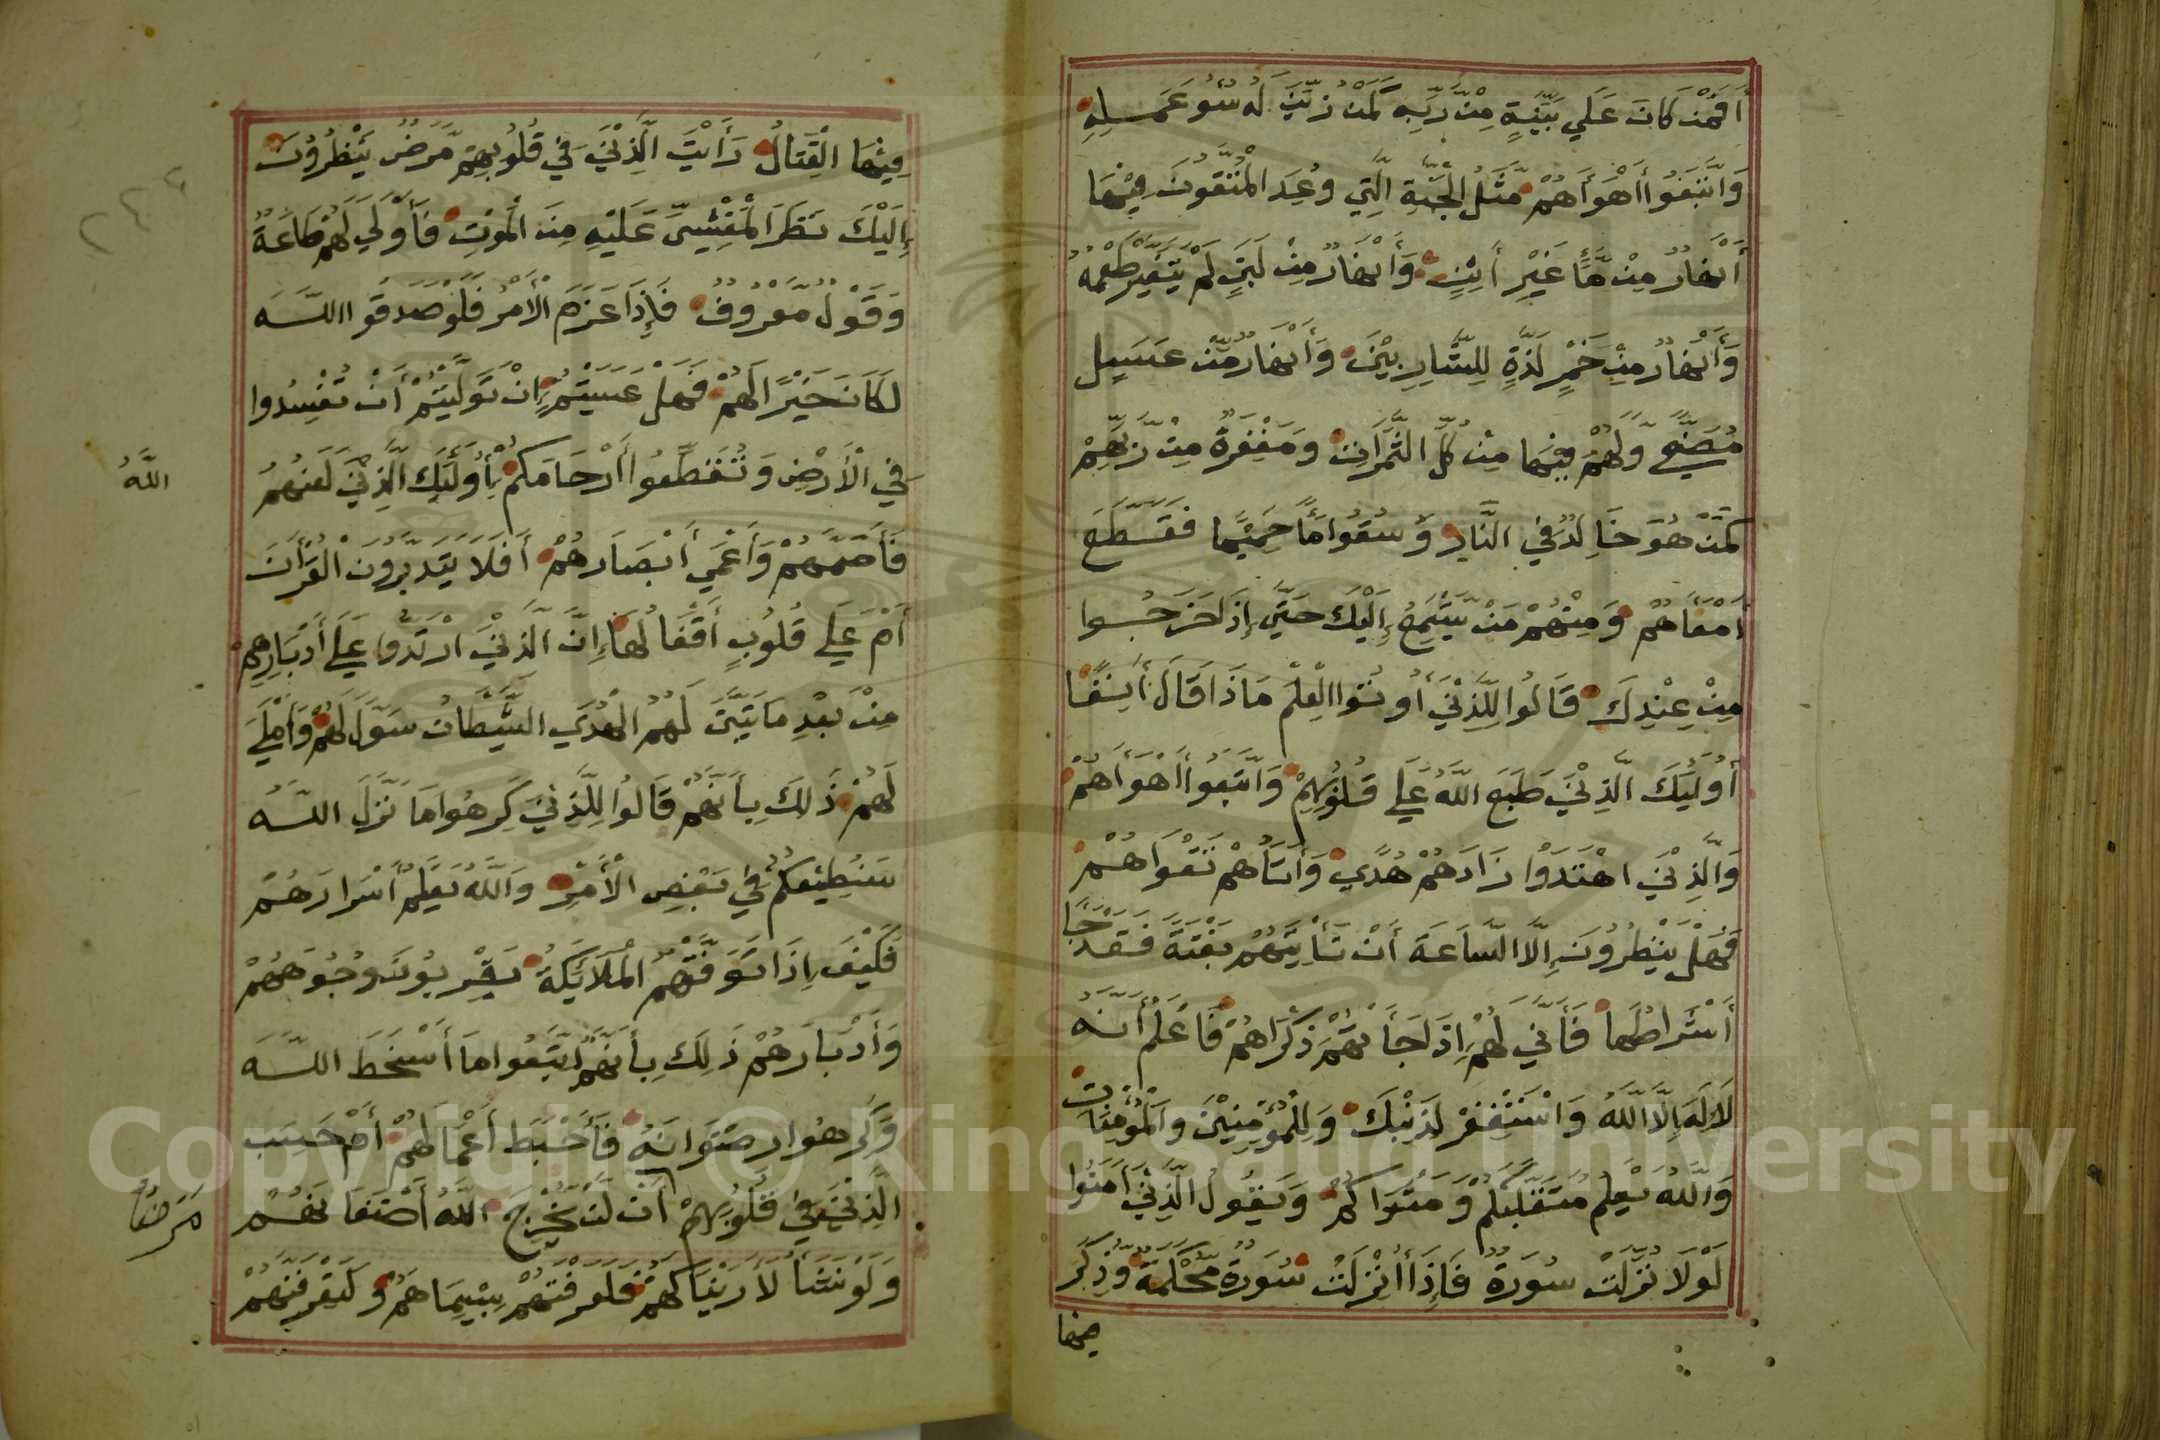 أَفَمَنْ كَانَ عَلَي بَيِّنَةٍ مِنْ رَّبِّهِ كَمَنْ زُيِّنَ لَهُ سُوُ عَمَلِهِ
وَاتَّبَعُوا أَهْوَأَهُمْ مَّثَلُ الْجَنَّةِ الَّتِي وُعِدَ الْمُتَّقُونَ فِيْهَا
أَنْهَارٌ مِنْ مَّاً غَيْرِ أَسِنٍ وَأَنْهَارٌ مِنْ لَبَنٍ لَمْ يَتَغَيَّرْ طَعْمُهُ
وَأَنْهَارٌ مِنْ خَمْرٍ لَذَّةٍ لِلشَّارِبِيْنَ وَأَنْهَارٌ مِّنْ عَسَلٍ
مُصَفًّي وَّلَهُمْ فِيْهَا مِنْ كُلِّ الثَّمَرَاتِ وَمَغْفِرَةٌ مِنْ رَّبِّهِمْ
كَمَنْ هُوَ خَالِدٌ فِي النَّارِ وَسُقُوا مَأً حَمِيْمًا فَقَطَّعَ
أَمْعَأَهُمْ وَمِنْهُمْ مَنْ يَّسْتَمِعُ إِلَيْكَ حَتَّي إِذَا خَرَجُوا
مِنْ عِنْدِكَ قَالُوا لِلَّذِيْنَ أُوتُوا الْعِلْمَ مَاذَا قَالَ أَنِفًا
أُوْلَئِكَ الَّذِيْنَ طَبَعَ اللَّهُ عَلَي قُلُوْبِهِمْ وَاتَّبَعُوا أَهْوَأَهُمْ
وَالَّذِيْنَ اهْتَدَوْا زَادَهُمْ هُدًي وَأَتَاهُمْ تَقْوَاهُمْ
فَهَلْ يَنْظُرُونَ إِلَّا السَّاعَةَ أَنْ تَأْتِيَهُمْ بَغْتَةً فَقَدْ جَا
أَشْرَاطُهَا فَأَنَّي لَهُمْ إِذَا جَأَتْهُمْ ذِكْرَاهُمْ فَاعْلَمْ أَنَّهُ
لَا إِلَهَ إِلَّا اللَّهُ وَاسْتَغْفِرْ لِذَنْبِكَ وَلِلْمُؤْمِنِيْنَ وَالْمُؤْمِنَاتِ
وَاللَّهُ يَعْلَمُ مُتَقَلَّبَكُمْ وَمَثْوَاكُمْ وَيَقُولُ الَّذِيْنَ أَمَنُوا
لَوْلَا نُزِّلَتْ سُورَةٌ فَإِذَا أُنْزِلَتْ سُورَةٌ مُّحْكَمَةٌ وَّذُكِرَ
فيها
فِيْهَا الْقِتَالُ رَأَيْتَ الَّذِيْنَ فِي قُلُوبِهِمْ مَّرَضٌ يَنْظُرُوْنَ
إِلَيْكَ نَظَرَ الْمَغْشِيِّ عَلَيْهِ مِنَ الْمَوْتِ فَأَوْلَي لَهُمْ طَاعَةٌ
وَقَوْلٌ مَّعْرُوْفٌ فَإِذَا عَزَمَ الْأَمْرُ فَلَوْ صَدَقُوا اللَّهَ
لَكَانَ خَيْرًا لَهُمْ فَهَلْ عَسَيْتُمْ إِنْ تَوَلَّيْتُمْ أَنْ تُفْسِدُوا
فِي الْأَرْضِ وَتُقَطِّعُوا أَرْحَامَكُمْ أُوْلَئِكَ الَّذِيْنَ لَعَنَهُمُ
اللَّهُ
فَأَصَمَّهُمْ وَأَعْمَي أَبْصَارَهُمْ أَفَلَا يَتَدَبَّرُونَ الْقُرْأَنَ
أَمْ عَلَي قُلُوبٍ أَقْفَالُهَا إِنَّ الَّذِيْنَ ارْتَدُّوا عَلَي أَدْبَارِهِمْ
مِنْ بَعْدِ مَا تَبَيَّنَ لَهُمُ الْهُدَي الشَّيْطَانُ سَوَّلَ لَهُمْ وَأَمْلَي
لَهُمْ ذَلِكَ بِأَنَّهُمْ قَالُوا لِلَّذِيْنَ كَرِهُوا مَا نَزَّلَ اللَّهُ
سَنُطِيْعُكُمْ فِي بَعْضِ الْأَمْرِ وَاللَّهُ يَعْلَمُ أَسْرَارَهُمْ
فَكَيْفَ إِذَا تَوَفَّتْهُمُ الْمَلَائِكَةُ يَضْرِبُونَ وُجُوْهَهُمْ
وَأَدْبَارَهُمْ ذَلِكَ بِأَنَّهُمُ اتَّبَعُوا مَا أَسْخَطَ اللَّهَ
وَكَرِهُوا رِضْوَانَهُ فَأَحْبَطَ أَعْمَالَهُمْ أَمْ حَسِبَ
الَّذِيْنَ فِي قُلُوْبِهِمْ أَنْ لَنْ يُخْرِجَ اللَّهُ أَضْغَانَهُمْ
مَرَضٌ
وَلَوْ نَشَأُ لَأَرَيْنَاكَهُمْ فَلَعَرَفْتَهُمْ بِسِيْمَاهُمْ وَلَتَعْرِفَنَّهُمْ
Copyright © King Saud University